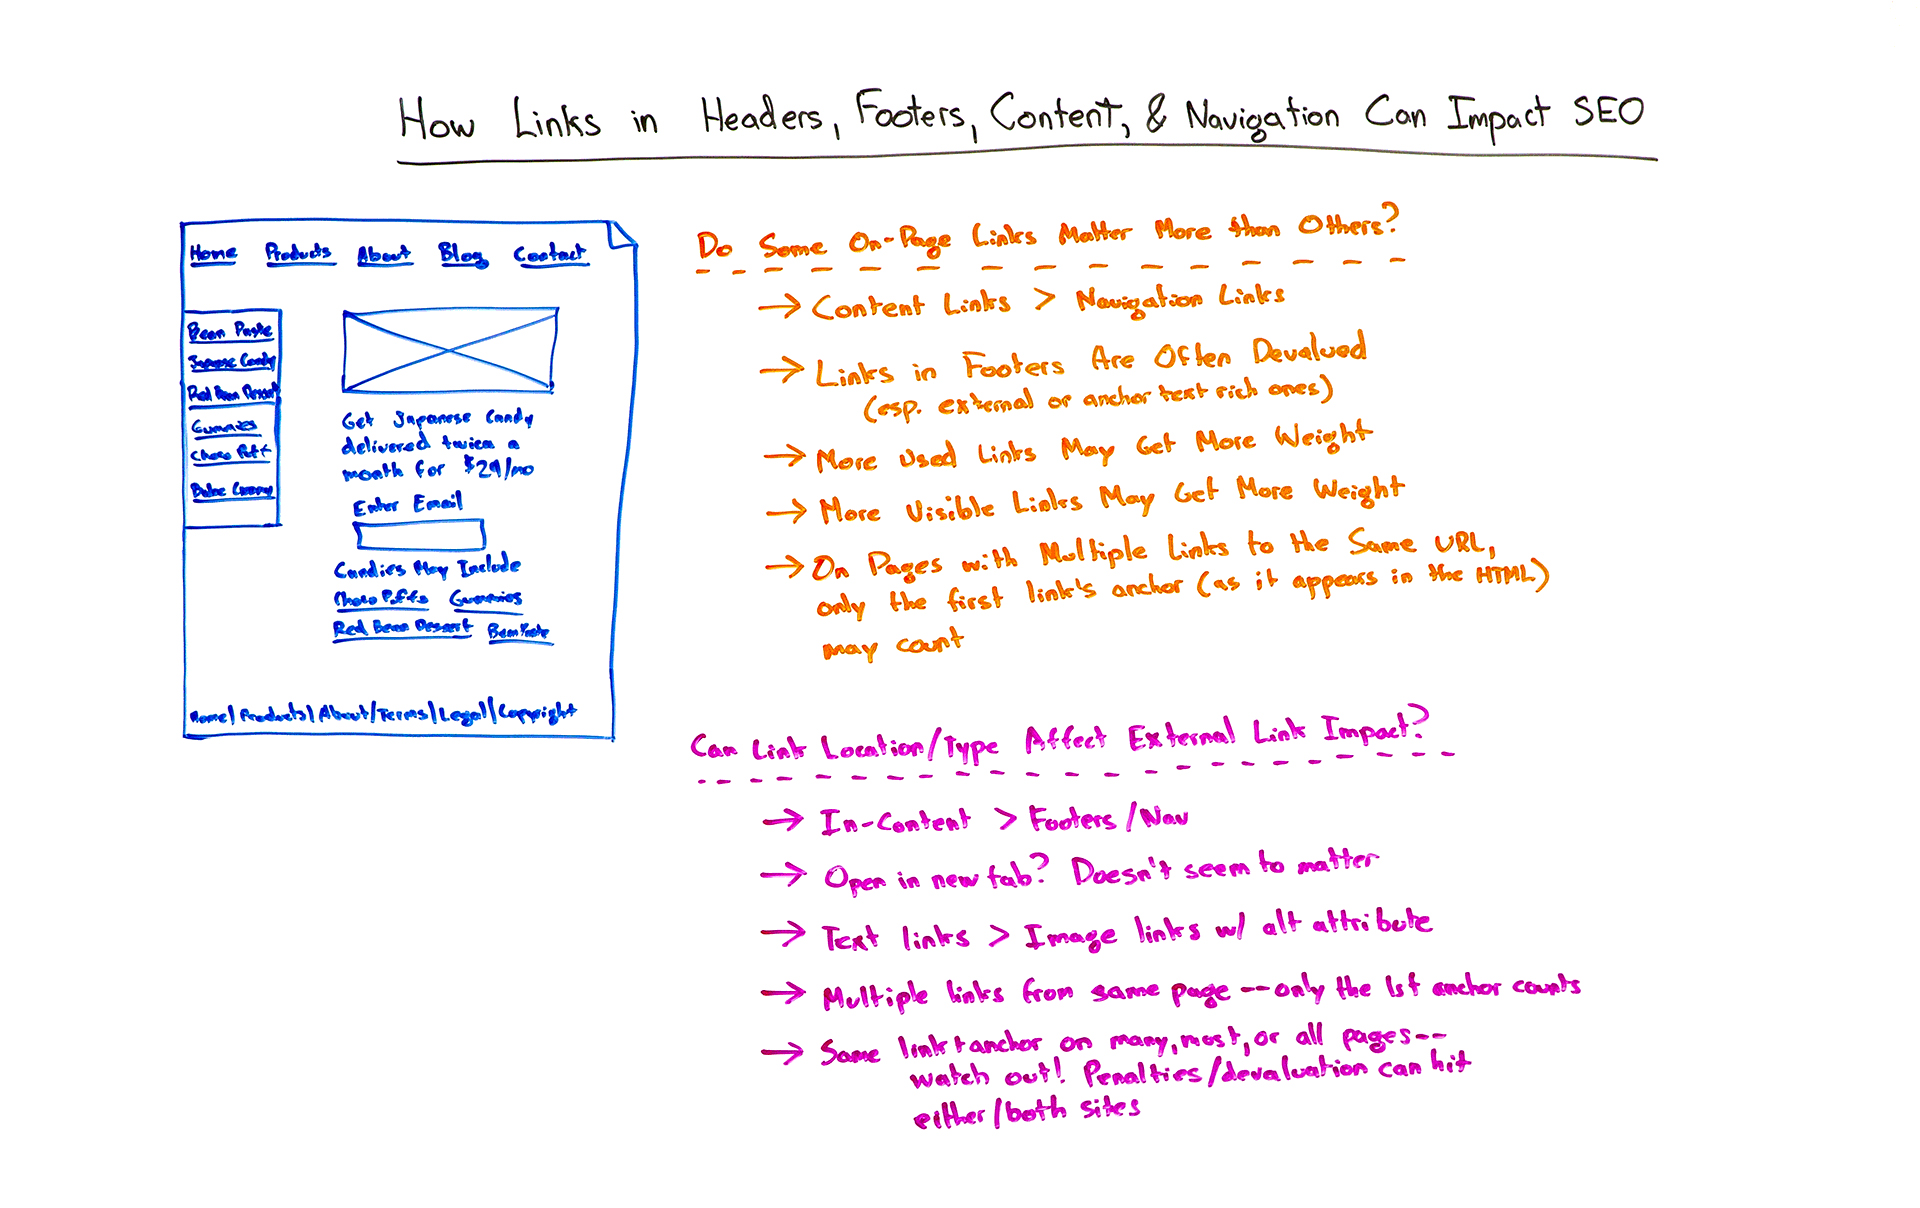 How Links in Headers, Footers, Content, & Navigation Can Impact SEO
Home Products About Blog Contact
Bean Paste
Japanese Candy
Red Bean Dessert
Gummies
Choco Puff
Get Japanese Candy
delivered twice a
month for $29/mo
Enter Email
Candies May Include
Choco Puffs Gummies
Red Bean Dessert Bean Paste
Home | Products | About | Terms | Legal | Copyright
Do Some On-Page Links Matter More than Others?
→ Content Links > Navigation Links
→ Links in Footers Are Often Devalued
(esp. external or anchor text rich ones)
→ More Used Links May Get More Weight
→ More Visible Links May Get More Weight
→ On Pages with Multiple Links to the Same URL,
only the first link's anchor (as it appears in the HTML)
may count
Can Link Location/Type Affect External Link Impact?
→ In-Content > Footers/Nav
→ Open in new tab? Doesn't seem to matter
→ Text links > Image links w/ alt attribute
→ Multiple links from same page -- only the 1st anchor counts
→ Same link + anchor on many, most, or all pages --
watch out! Penalties/devaluation can hit
either/both sites